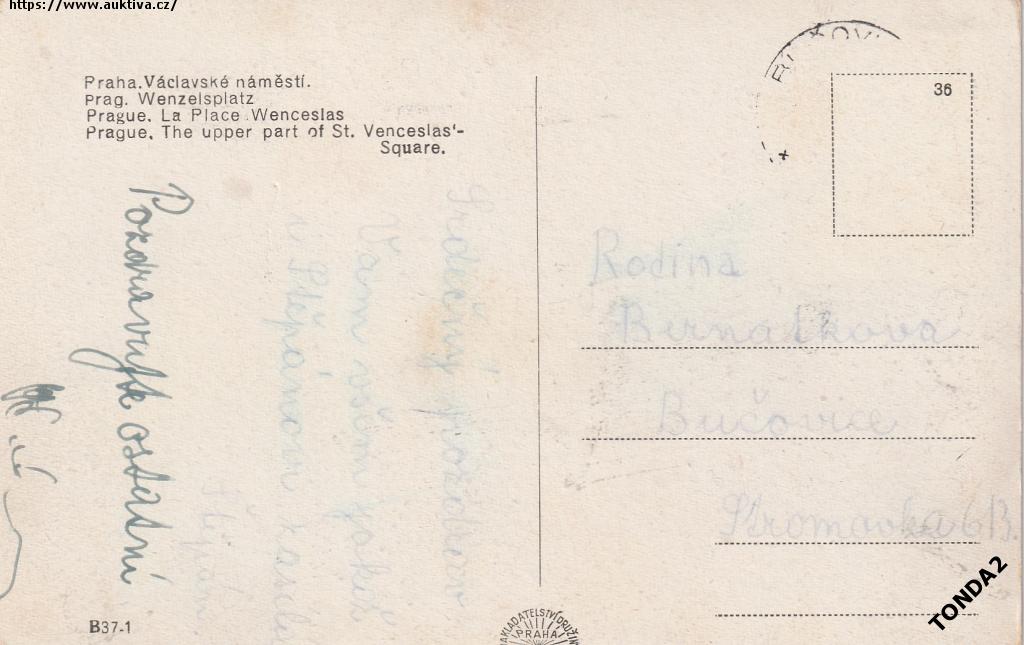 https://www.auktiva.cz/
Praha.Václavské náměstí.
Prag. Wenzelsplatz
Prague. La Place Wenceslas
Prague. The upper part of St. Venceslas'-
Square.
36
Srdečný pozdrav
Vám všem
Štěpánovi
Štěpán
Pozdravujte ostatní
Rodina
Bernátkova
Bučovice
Stromovka 613.
B37-1
NAKLADATELSTVÍ DRUŽIN
PRAHA
TONDA2